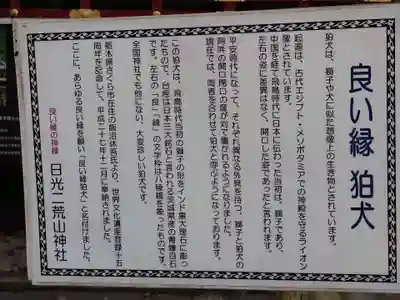 良い縁 狛犬
狛犬は、獅子や犬に似た想像上の生き物とされています。
起源は、古代エジプト・メソポタミアでの神殿を守るライオン
像とされています。
中国を経て飛鳥時代に日本に伝わった当初は、獅子であり、
左右の姿に差異はなく、開口した姿であったと言われます。
平安時代になって、それぞれ異なる外見を持つ、獅子と狛犬の
阿吽の開口閉口の像が対で置かれるようになりました。
現在では、両者を合わせて狛犬と呼ぶようになっております。
この狛犬は、飛鳥時代当初の獅子の形をインド黒大理石に彫っ
たもので、台座は日本三大銘石と言われる茨城県産の青糠目石
です。左右の「良」「縁」の文字枠は八稜鏡を象ったものです。
全国神社でも他にない、大変珍しい狛犬です。
栃木県さくら市在住の飯沼休苑氏より、世界文化遺産登録十五
周年を記念して、平成二十七年十二月に奉納されました。
ここに、あらゆる良い縁を願い「良い縁狛犬」と名付けました。
良い縁の神様 日光二荒山神社